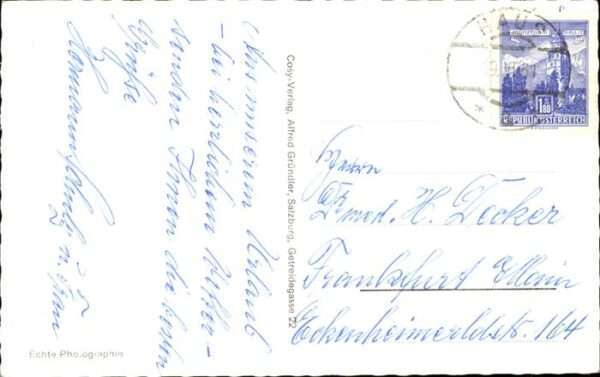 Aus unserem Urlaub
- bei herrlichem Wetter -
senden Ihnen die besten
Grüße
Hermann u. Frau
Echte Photographie
Cosy-Verlag, Alfred Gründler, Salzburg, Getreidegasse 22
1.80
REPUBLIK ÖSTERREICH
Herrn
Dr. med. H. Decker
Frankfurt / Main
Eckenheimerldstr. 164